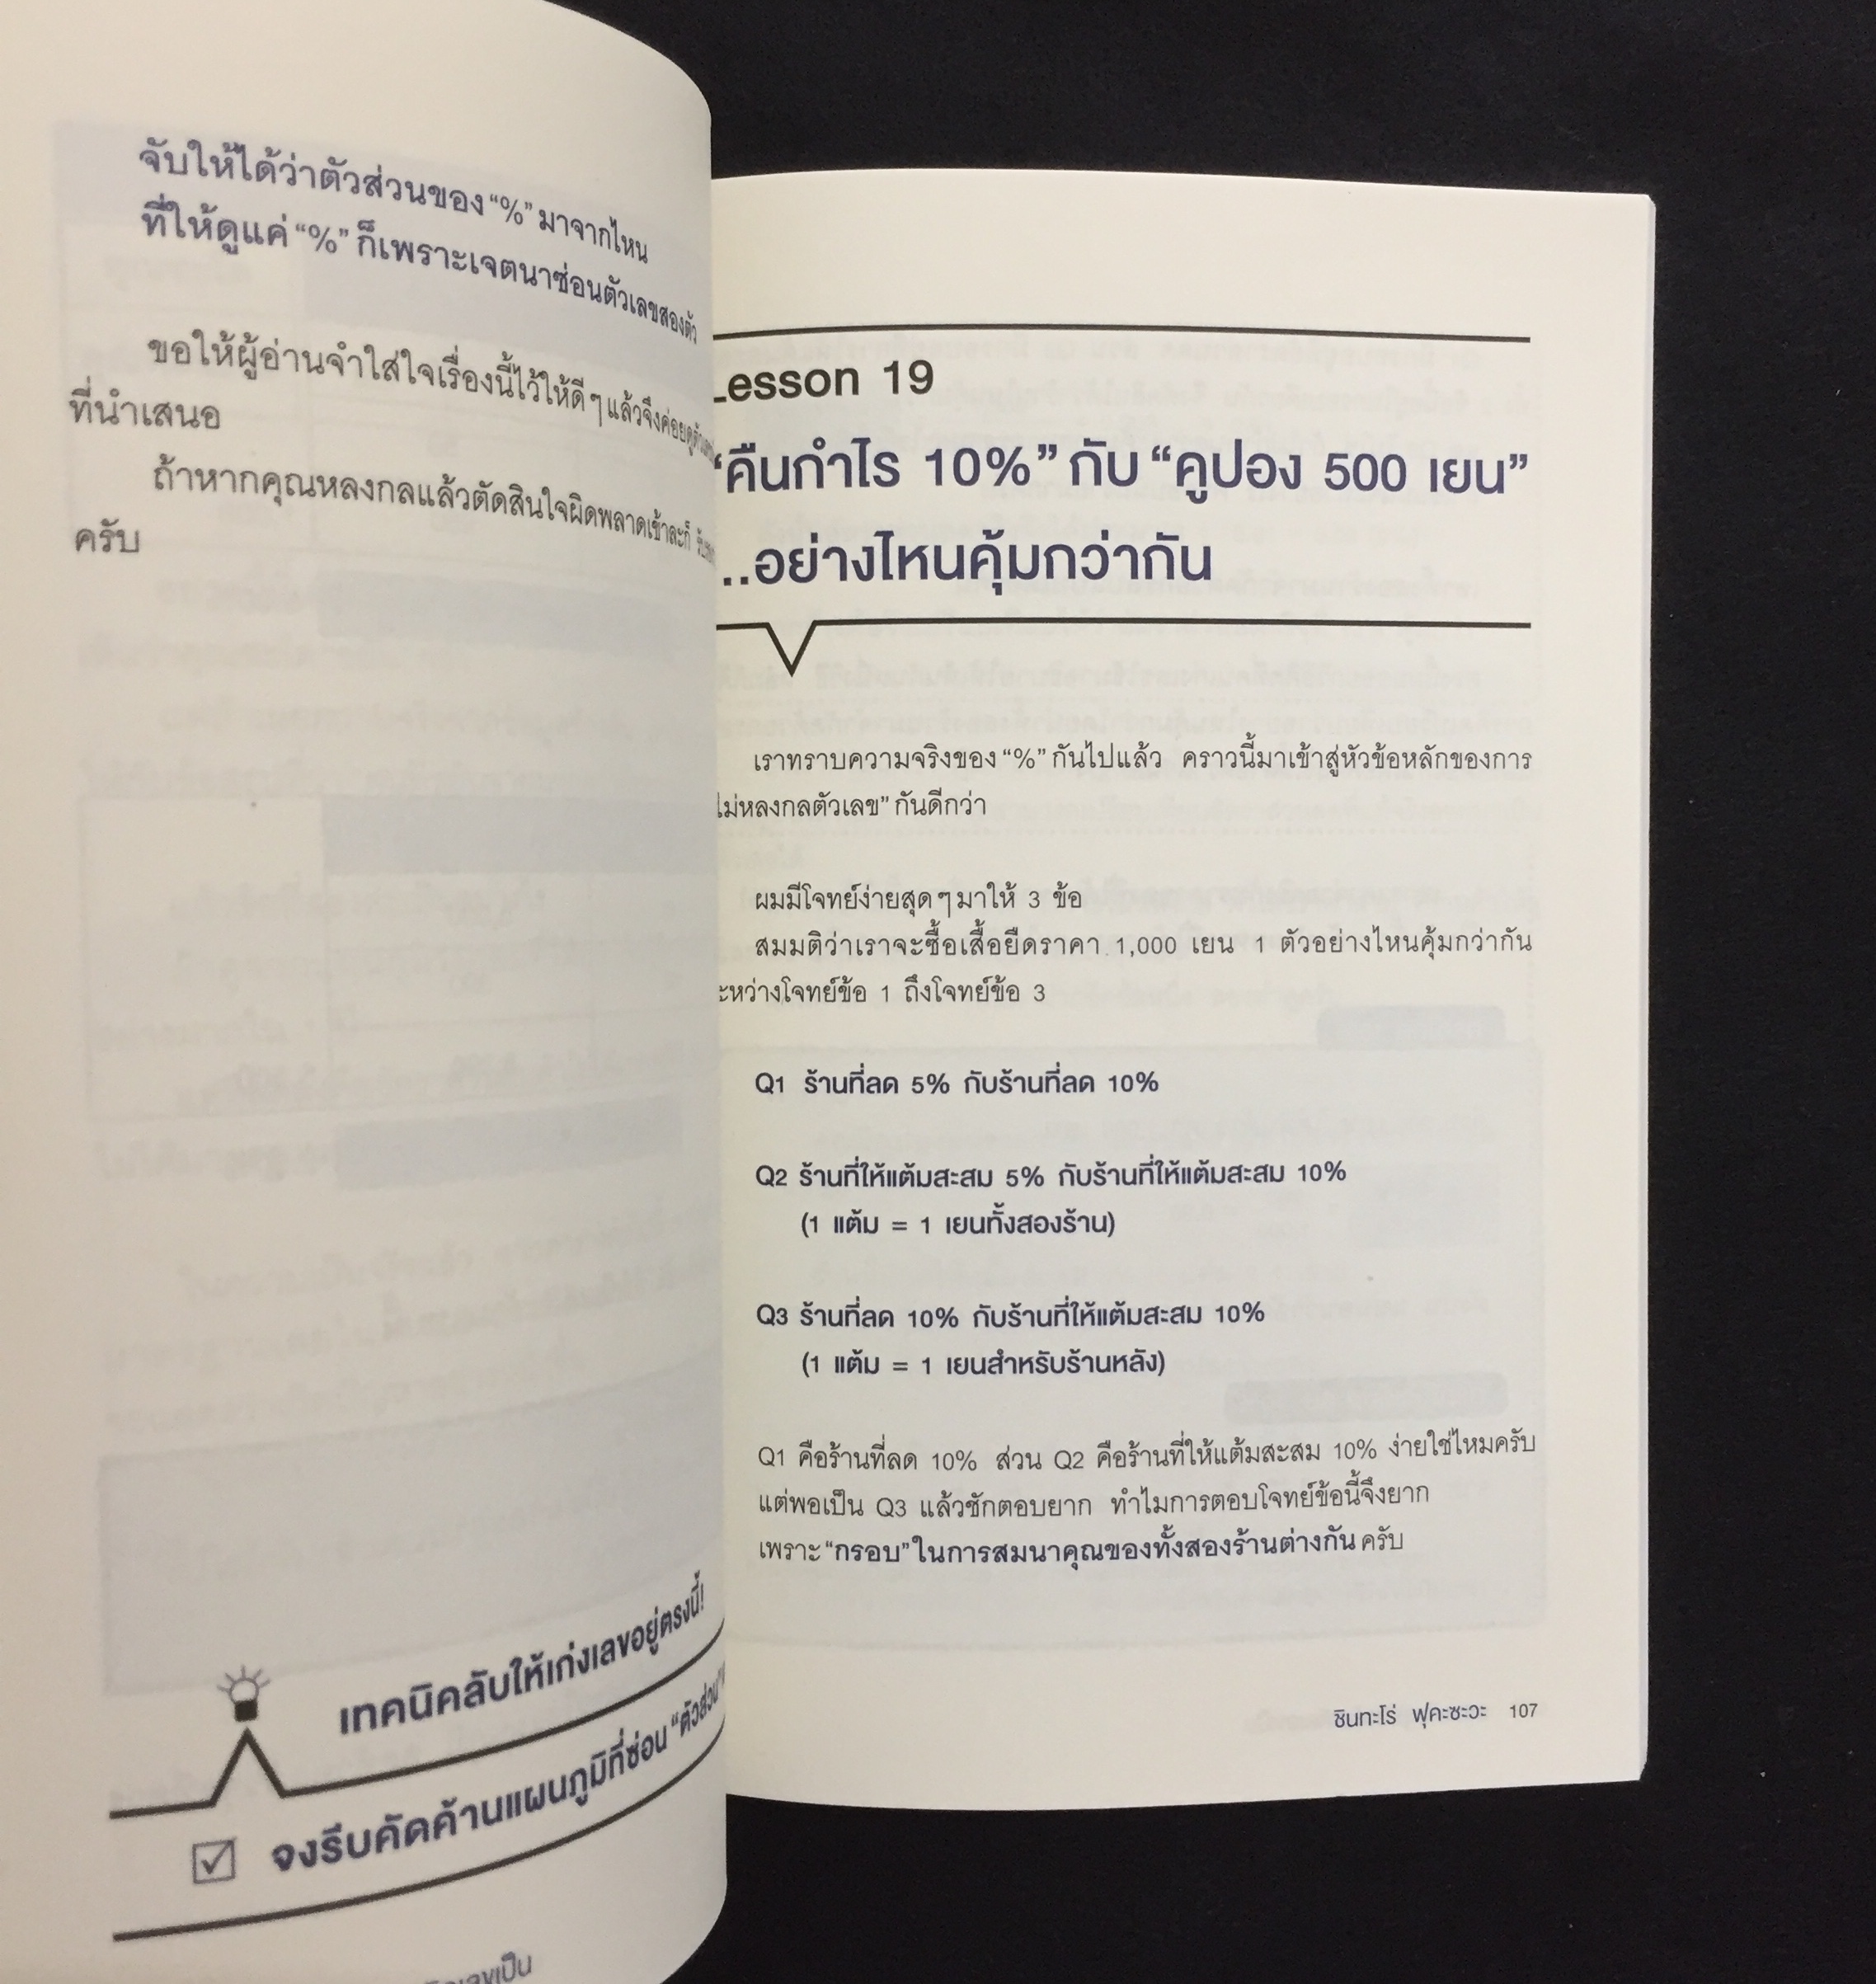 จับให้ได้ว่าตัวส่วนของ “%” มาจากไหน
ที่ให้ดูแค่ “%” ก็เพราะเจตนาซ่อนตัวเลขสองตัว
ขอให้ผู้อ่านจำใส่ใจเรื่องนี้ไว้ให้ดีๆ แล้วจึงค่อยดู
ที่นำเสนอ
ถ้าหากคุณหลงกลแล้วตัดสินใจผิดพลาดเข้าละก็
ครับ
เทคนิคลับให้เก่งเลขอยู่ตรงนี้!
จงรีบคัดค้านแผนภูมิที่ซ่อน “ตัวส่วน”
Lesson 19
“คืนกำไร 10%” กับ “คูปอง 500 เยน”
...อย่างไหนคุ้มกว่ากัน
เราทราบความจริงของ “%” กันไปแล้ว คราวนี้มาเข้าสู่หัวข้อหลักของการ
ไม่หลงกลตัวเลข” กันดีกว่า
ผมมีโจทย์ง่ายสุดๆ มาให้ 3 ข้อ
สมมติว่าเราจะซื้อเสื้อยืดราคา 1,000 เยน 1 ตัวอย่างไหนคุ้มกว่ากัน
ระหว่างโจทย์ข้อ 1 ถึงโจทย์ข้อ 3
Q1 ร้านที่ลด 5% กับร้านที่ลด 10%
Q2 ร้านที่ให้แต้มสะสม 5% กับร้านที่ให้แต้มสะสม 10%
(1 แต้ม = 1 เยนทั้งสองร้าน)
Q3 ร้านที่ลด 10% กับร้านที่ให้แต้มสะสม 10%
(1 แต้ม = 1 เยนสำหรับร้านหลัง)
Q1 คือร้านที่ลด 10% ส่วน Q2 คือร้านที่ให้แต้มสะสม 10% ง่ายใช่ไหมครับ
แต่พอเป็น Q3 แล้วชักตอบยาก ทำไมการตอบโจทย์ข้อนี้จึงยาก
เพราะ “กรอบ” ในการสมนาคุณของทั้งสองร้านต่างกัน ครับ
ชินทะโร่ ฟุคะซะวะ 107